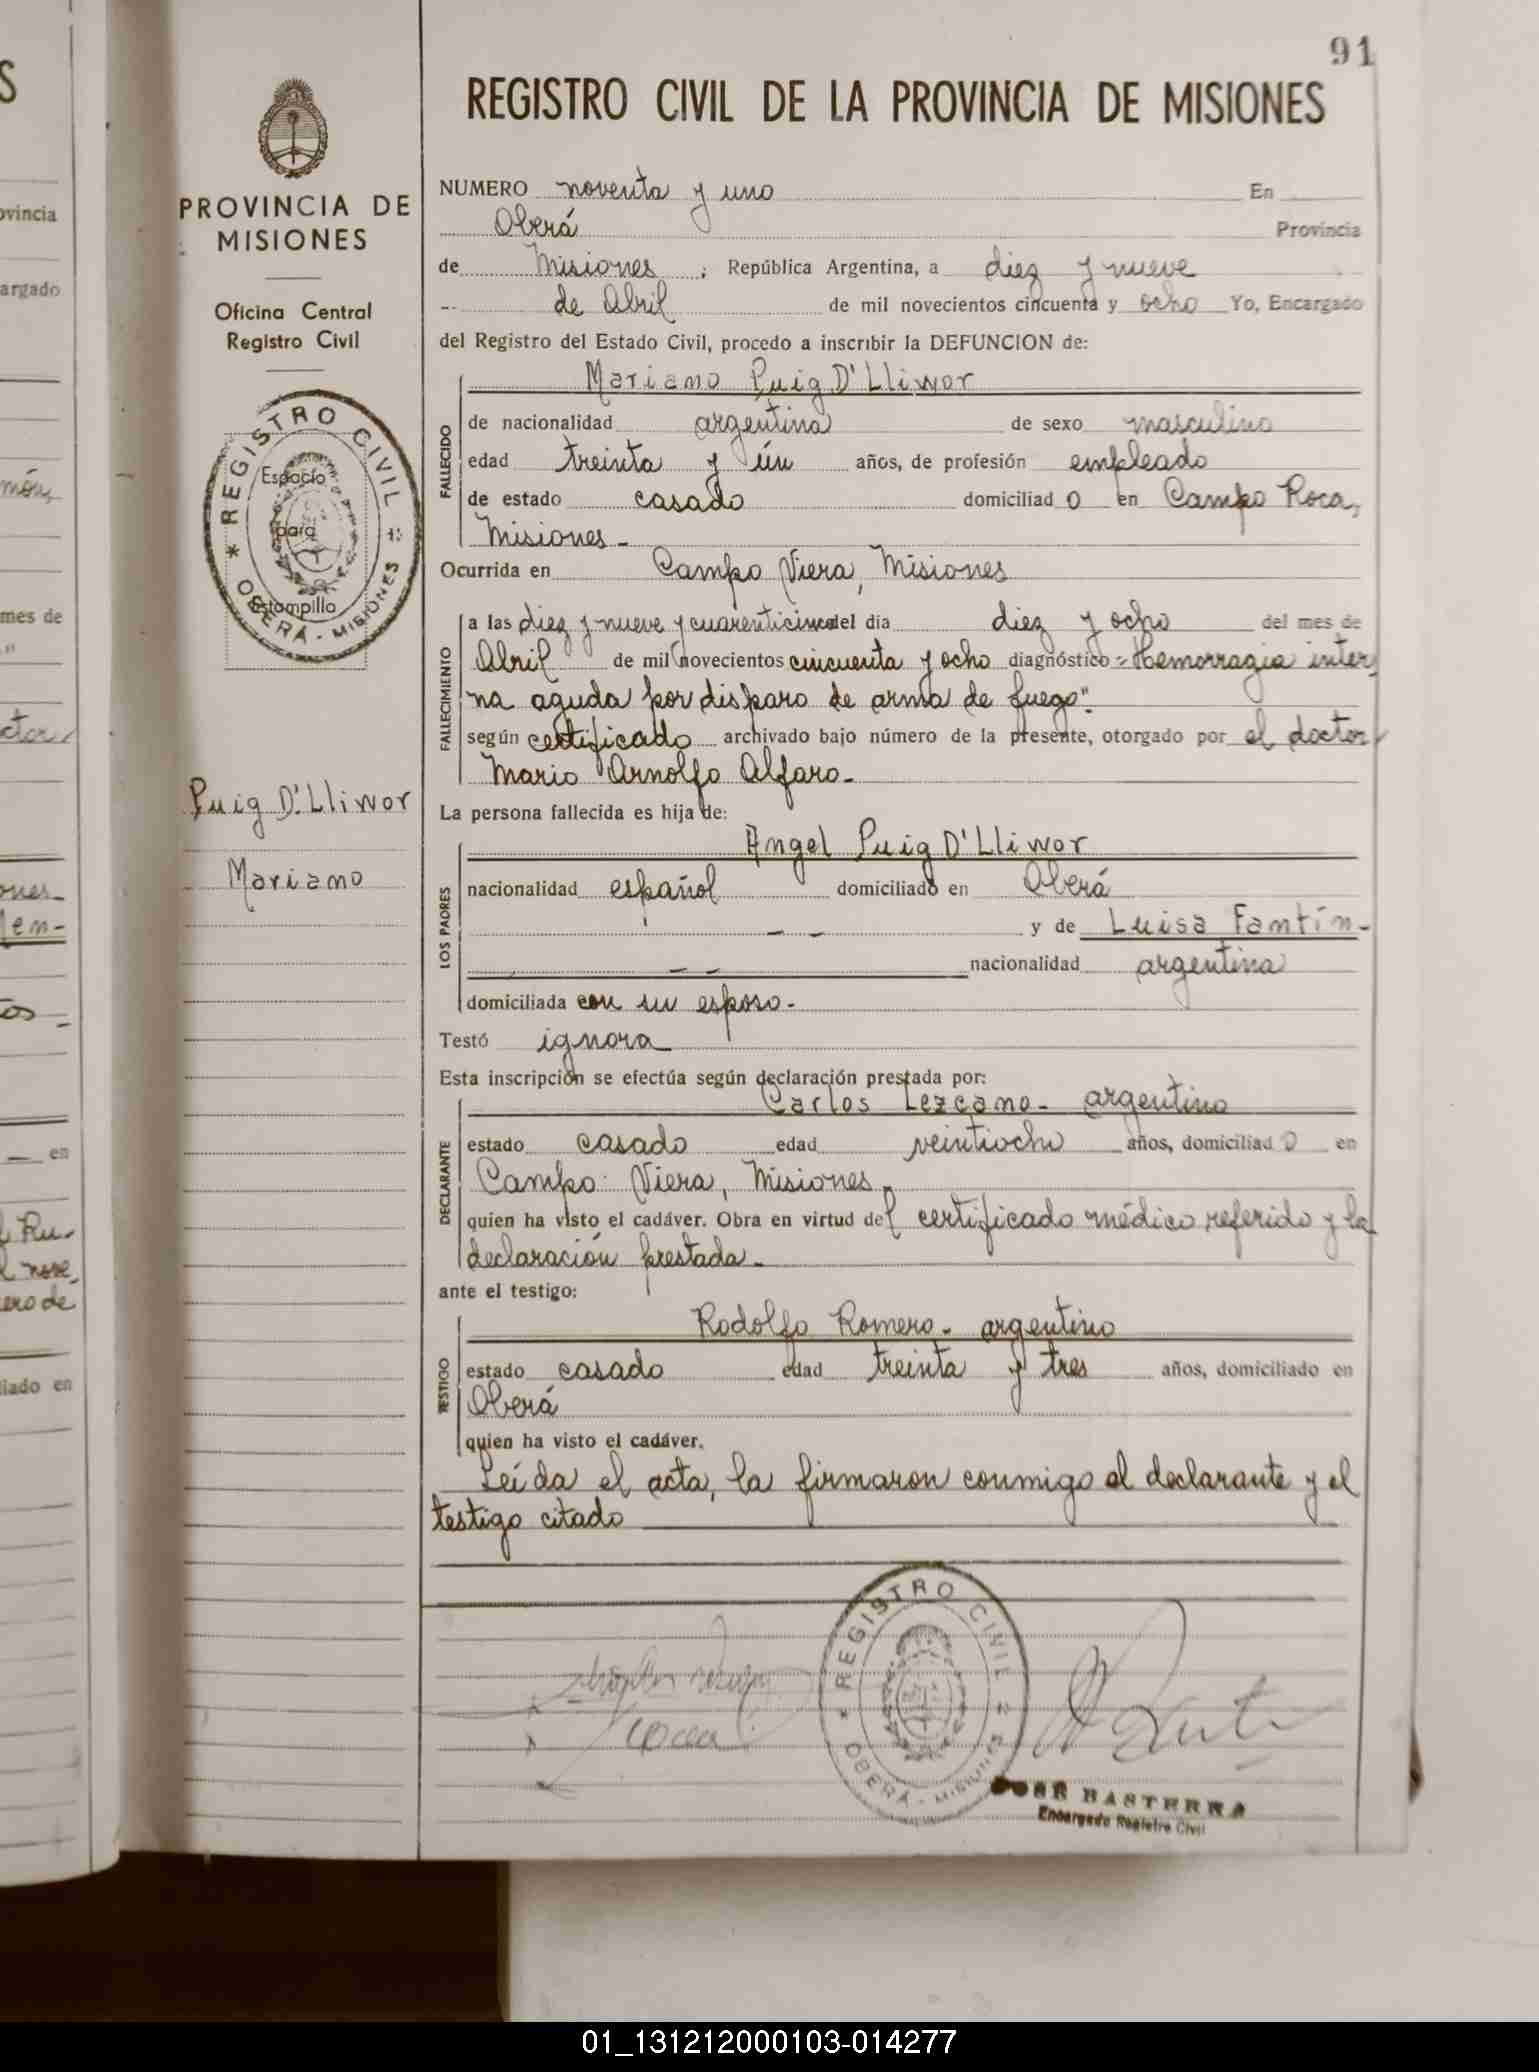 91
REGISTRO CIVIL DE LA PROVINCIA DE MISIONES
PROVINCIA DE
MISIONES
Oficina Central
Registro Civil
REGISTRO CIVIL
OBERÁ - MISIONES
Espacio
para
Estampilla
Puig D'.Lliwor
Mariano
NUMERO noventa y uno En
Oberá Provincia
de Misiones ; República Argentina, a diez y nueve
de Abril de mil novecientos cincuenta y ocho Yo, Encargado
del Registro del Estado Civil, procedo a inscribir la DEFUNCION de:
Mariano Puig D'Lliwor
FALLECIDO
de nacionalidad argentina de sexo masculino
edad treinta y ún años, de profesión empleado
de estado casado domiciliado en Campo Roca,
Misiones -
Ocurrida en Campo Viera, Misiones
FALLECIMIENTO
a las diez y nueve y cuarenticinco del día diez y ocho del mes de
Abril de mil novecientos cincuenta y ocho diagnóstico "Hemorragia inter
na aguda por disparo de arma de fuego".
según certificado archivado bajo número de la presente, otorgado por el doctor
Mario Arnolfo Alfaro-
La persona fallecida es hija de:
LOS PADRES
Angel Puig D'Lliwor
nacionalidad español domiciliado en Oberá
- - y de Luisa Fantín-
- - nacionalidad argentina
domiciliada con su esposo-
Testó ignora
Esta inscripción se efectúa según declaración prestada por:
DECLARANTE
Carlos Lezcano- argentino
estado casado edad veintiocho años, domiciliado en
Campo Viera, Misiones-
quien ha visto el cadáver. Obra en virtud del certificado médico referido y la
declaración prestada-
ante el testigo:
TESTIGO
Rodolfo Romero- argentino
estado casado edad treinta y tres años, domiciliado en
Oberá
quien ha visto el cadáver.
Leída el acta, la firmaron conmigo el declarante y el
testigo citado
REGISTRO CIVIL
OBERÁ - MISIONES
JOSÉ BASTERRA
Encargado Registro Civil
01_131212000103-014277